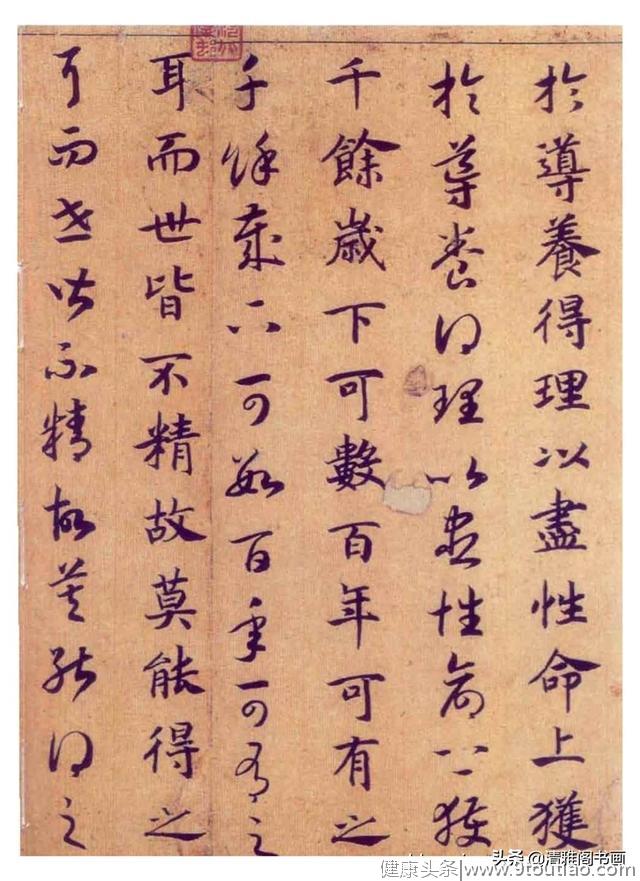 於導養得理以盡性命上獲
於導養得理以盡性命上獲
千餘歲下可數百年可有之
千餘歲下可數百年可有之
耳而世皆不精故莫能得之
耳而世皆不精故莫能得之
头条 @清雅阁书画
健康头条|www.9toutiao.com